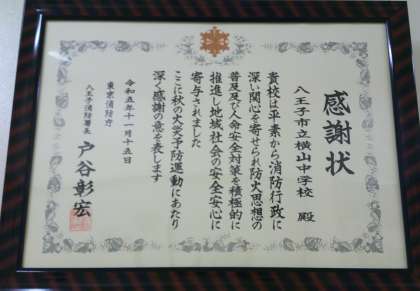 感謝状
八王子市立横山中学校 殿
貴校は平素から消防行政に
深い関心を寄せられ防火思想の
普及及び人命安全対策を積極的に
推進し地域社会の安全安心に
寄与されました
ここに秋の火災予防運動にあたり
深く感謝の意を表します
令和五年十一月十五日
東京消防庁
八王子消防署長 戸谷彰宏